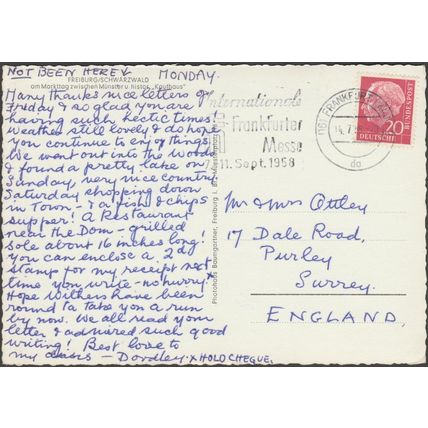 NOT BEEN HERE
MONDAY.
FREIBURG/SCHWARZWALD
am Markttag zwischen Münster u. histor. „Kaufhaus"
Many thanks nice letters of
Friday & so glad you are
having such hectic times!
Weather still lovely & do hope
you continue to enjoy things.
We went out into the Woods
& found a pretty lake on
Sunday, very nice country.
Saturday shopping down
in Town - & a fish & chips
supper! A Restaurant
near the Dom - grilled
sole about 16 inches long!
you can enclose a 2d
stamp for my receipt next
time you write - no hurry!
Hope Withers have been
round to take you a run
by now. We all read your
letter & admired such good
writing! Best love to
my dears - Dordley. x HOLD CHEQUE.
Photohaus Baumgartner, Freiburg i. Br., Messeplatz
Internationale
Frankfurter
Messe
11. Sept. 1958
(16) FRANKFURT (MAIN)
14.7.58
da
20
DEUTSCHE
BUNDESPOST
Mr & Mrs Ottley
17 Dale Road,
Purley
Surrey.
ENGLAND.